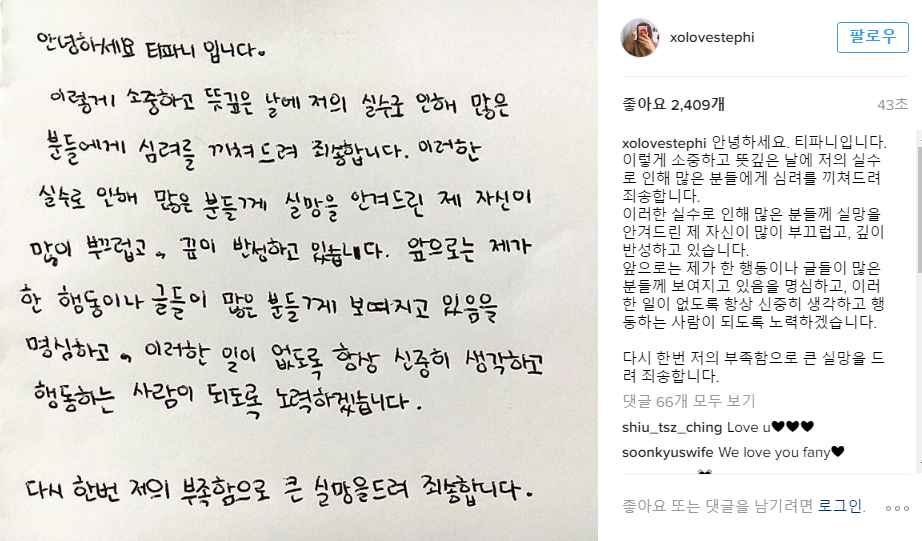 안녕하세요 티파니 입니다.
이렇게 소중하고 뜻깊은 날에 저의 실수로 인해 많은
분들에게 심려를 끼쳐드려 죄송합니다. 이러한
실수로 인해 많은 분들께 실망을 안겨드린 제 자신이
많이 부끄럽고, 깊이 반성하고 있습니다. 앞으로는 제가
한 행동이나 글들이 많은 분들께 보여지고 있음을
명심하고, 이러한 일이 없도록 항상 신중히 생각하고
행동하는 사람이 되도록 노력하겠습니다.
다시 한번 저의 부족함으로 큰 실망을드려 죄송합니다.
xolovestephi
팔로우
좋아요 2,409개
43초
xolovestephi 안녕하세요. 티파니입니다.
이렇게 소중하고 뜻깊은 날에 저의 실수
로 인해 많은 분들에게 심려를 끼쳐드려
죄송합니다.
이러한 실수로 인해 많은 분들께 실망을
안겨드린 제 자신이 많이 부끄럽고, 깊이
반성하고 있습니다.
앞으로는 제가 한 행동이나 글들이 많은
분들께 보여지고 있음을 명심하고, 이러
한 일이 없도록 항상 신중히 생각하고 행
동하는 사람이 되도록 노력하겠습니다.
다시 한번 저의 부족함으로 큰 실망을 드
려 죄송합니다.
댓글 66개 모두 보기
shiu_tsz_ching Love u🖤🖤🖤
soonkyuswife We love you fany🖤
좋아요 또는 댓글을 남기려면 로그인.